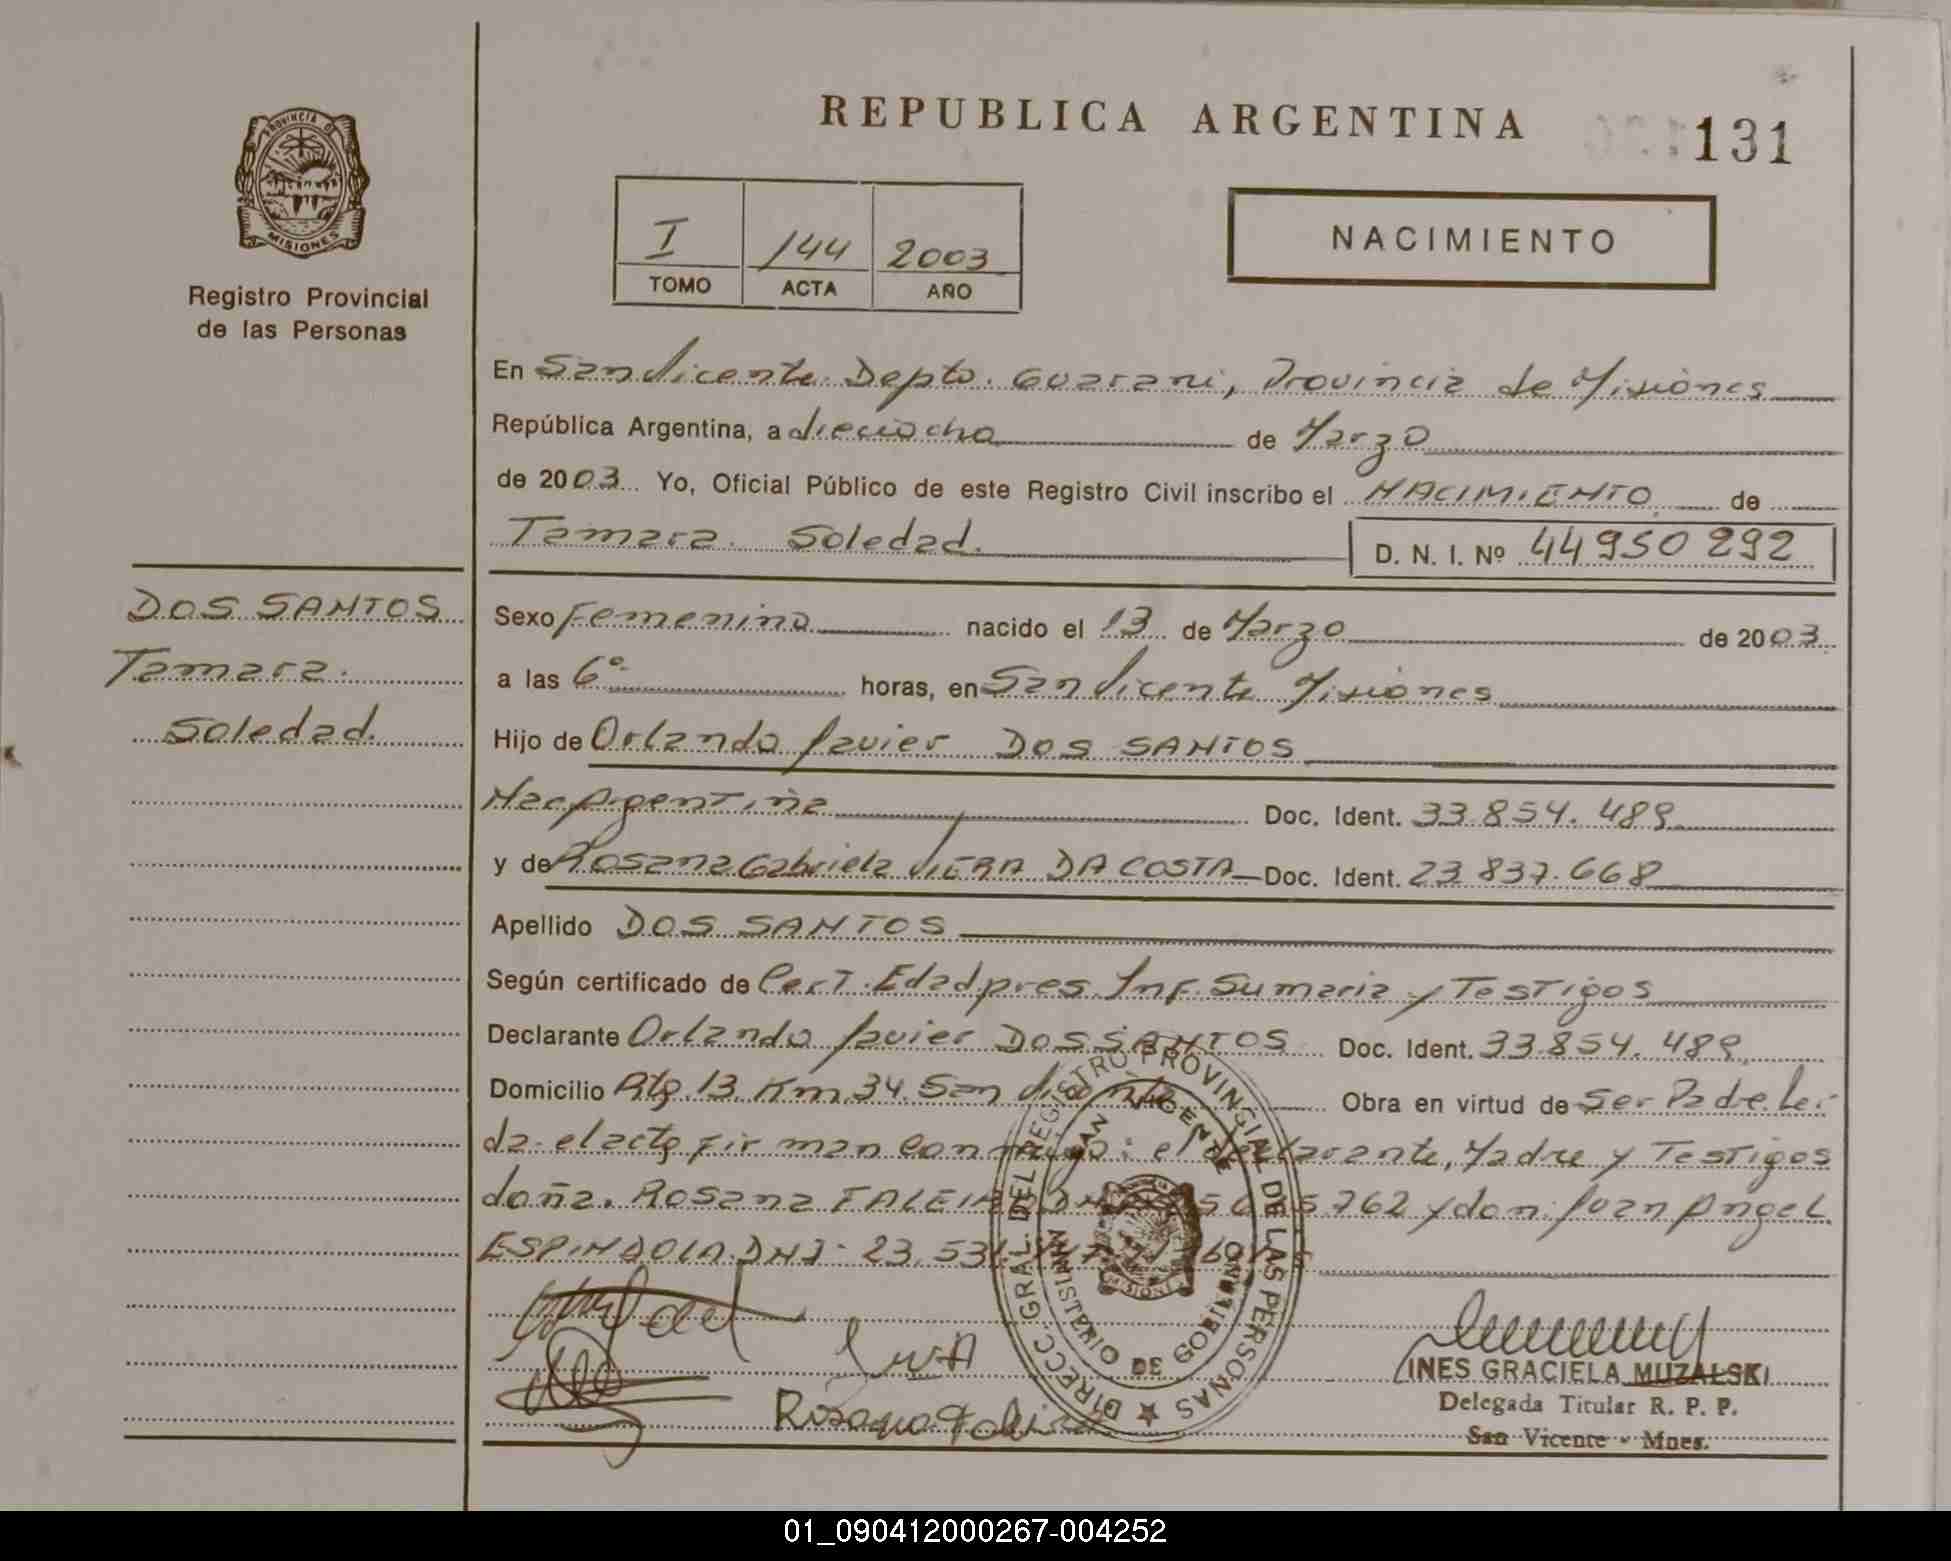 REPUBLICA ARGENTINA
131
PROVINCIA DE
MISIONES
Registro Provincial
de las Personas
I 144 2003
TOMO ACTA AÑO
NACIMIENTO
En San Vicente Depto. Guarani, Provincia de Misiones
República Argentina, a dieciocho de Marzo
de 2003 Yo, Oficial Público de este Registro Civil inscribo el NACIMIENTO de
Tamara Soledad.
D. N. I. Nº 44950292
DOS SANTOS
Tamara
Soledad.
Sexo Femenino nacido el 13 de Marzo de 2003
a las 6º horas, en San Vicente Misiones
Hijo de Orlando Javier DOS SANTOS
Nac Argentina Doc. Ident. 33.854.489
y de Rosana Gabriela VIERA DA COSTA Doc. Ident. 23.837.668
Apellido DOS SANTOS
Según certificado de Cert. Edad pres. Inf. Sumaria y Testigos
Declarante Orlando Javier DOS SANTOS Doc. Ident. 33.854.489
Domicilio Rta 13 Km 34 San Vicente Obra en virtud de Ser Padre. Lei
da el acta firman conmigo: el declarante, Madre y Testigos
doña. Rosana 762 y don Juan Angel
ESPINDOLA DNI: 23.531
DIRECC. GRAL. DEL REGISTRO PROVINCIAL DE LAS PERSONAS
SAN VICENTE
MINISTERIO DE GOBIERNO
INES GRACIELA MUZALSKI
Delegada Titular R. P. P.
San Vicente - Mnes.
01_090412000267-004252